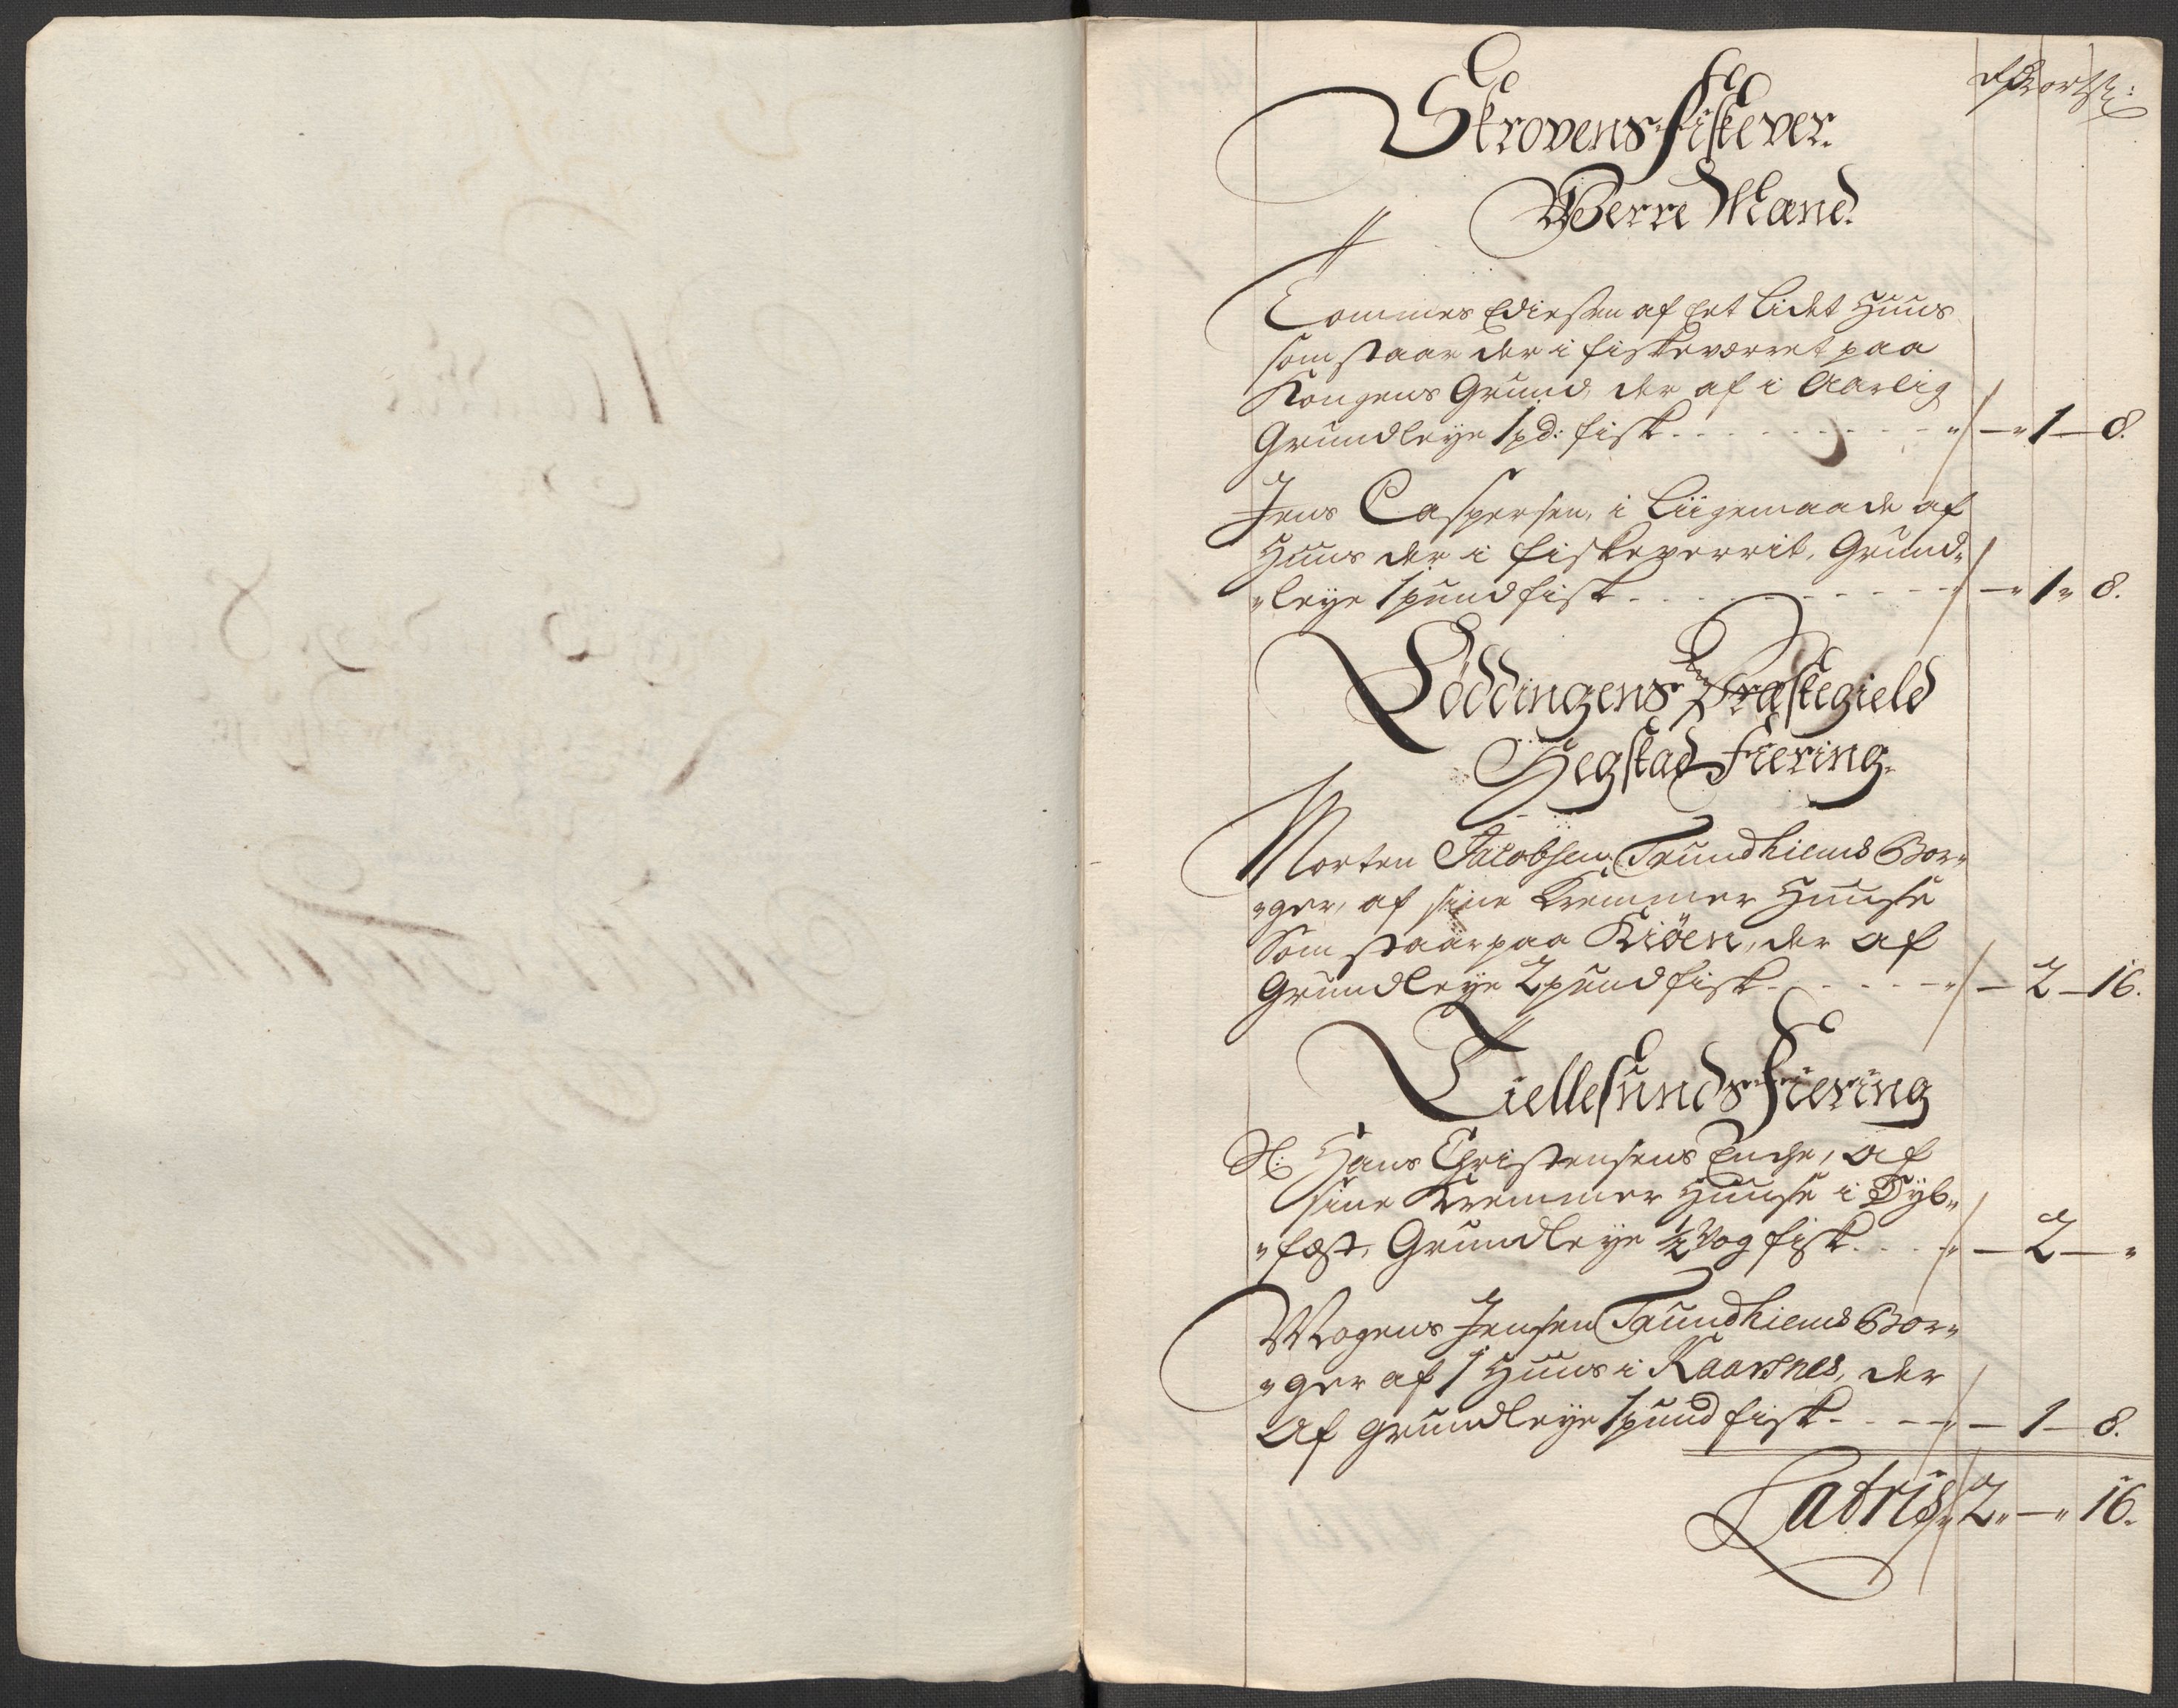 Skrovens Fiskever.
Werre Mænd.
Tommes Ediessen af Eet lidet Huus
som staar der i fiskeværret paa
Kongens Grund, der af i Aarlig
Grundleÿe 1 pd: fisk - - - " - " 1 - 8.
Jens Caspersen, i liigemaade af
Huus der i fiskeverrit, Grund„
„leÿe 1 pund fisk - - - - " 1 " 8.
Löddingens Præstegield
Hegstad Fiering.
Morten Jacobsen Trundhiems Bor„
„ger, af sine Kremmer Huuse
Som staar paa Kiöen, der af
Grundleÿe 2 pund fisk - - - " - 2 - 16.
Tiellesunds Fiering
Sl: Hans Christensens Enche, af
sine Kremmer Huuse i Sÿb„
„fæst, Grundleÿe ½ Vog fisk - - - 2 - "
Mogens Jensen Trundhiems Bor„
„ger af 1 Huus i Kaarsnes, der
Af grundleÿe 1 pund fisk - - - - 1 - 8.
Latris 2 " - " 16.